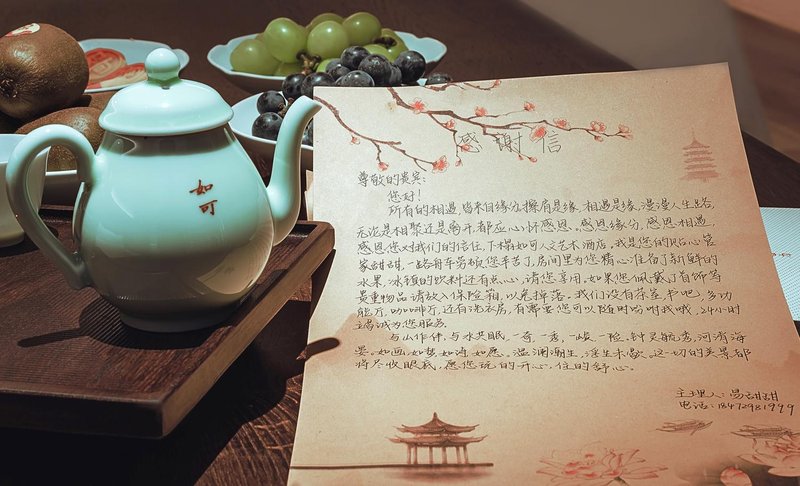 如
可
感谢信
尊敬的贵宾:
您好!
所有的相遇,皆来自缘分,擦肩是缘,相遇是缘,漫漫人生路,
无论是相聚还是离开,都应心怀感恩,感恩缘分,感恩相遇,
感恩您对我们的信任,下榻如可人文艺术酒店。我是您的贴心管
家甜甜,一路舟车劳顿,您辛苦了,房间里为您精心准备了新鲜的
水果,冰镇的饮料还有点心,请您享用。如果您佩戴了首饰等
贵重物品请放入保险箱,以免掉落。我们设有茶室,书吧,多功
能厅,咖啡厅,还有洗衣房,有需要您可以随时吩咐我哦,24小时
竭诚为您服务。
与山作伴,与水共眠,一奇,一秀,一峻,一险,钟灵毓秀,河清海
晏,如画,如梦,如诗,如愿。温澜潮生,浮生未歇,这一切的美景都
将尽收眼底,愿您玩的开心,住的舒心。
主理人:易甜甜
电话:18472981999